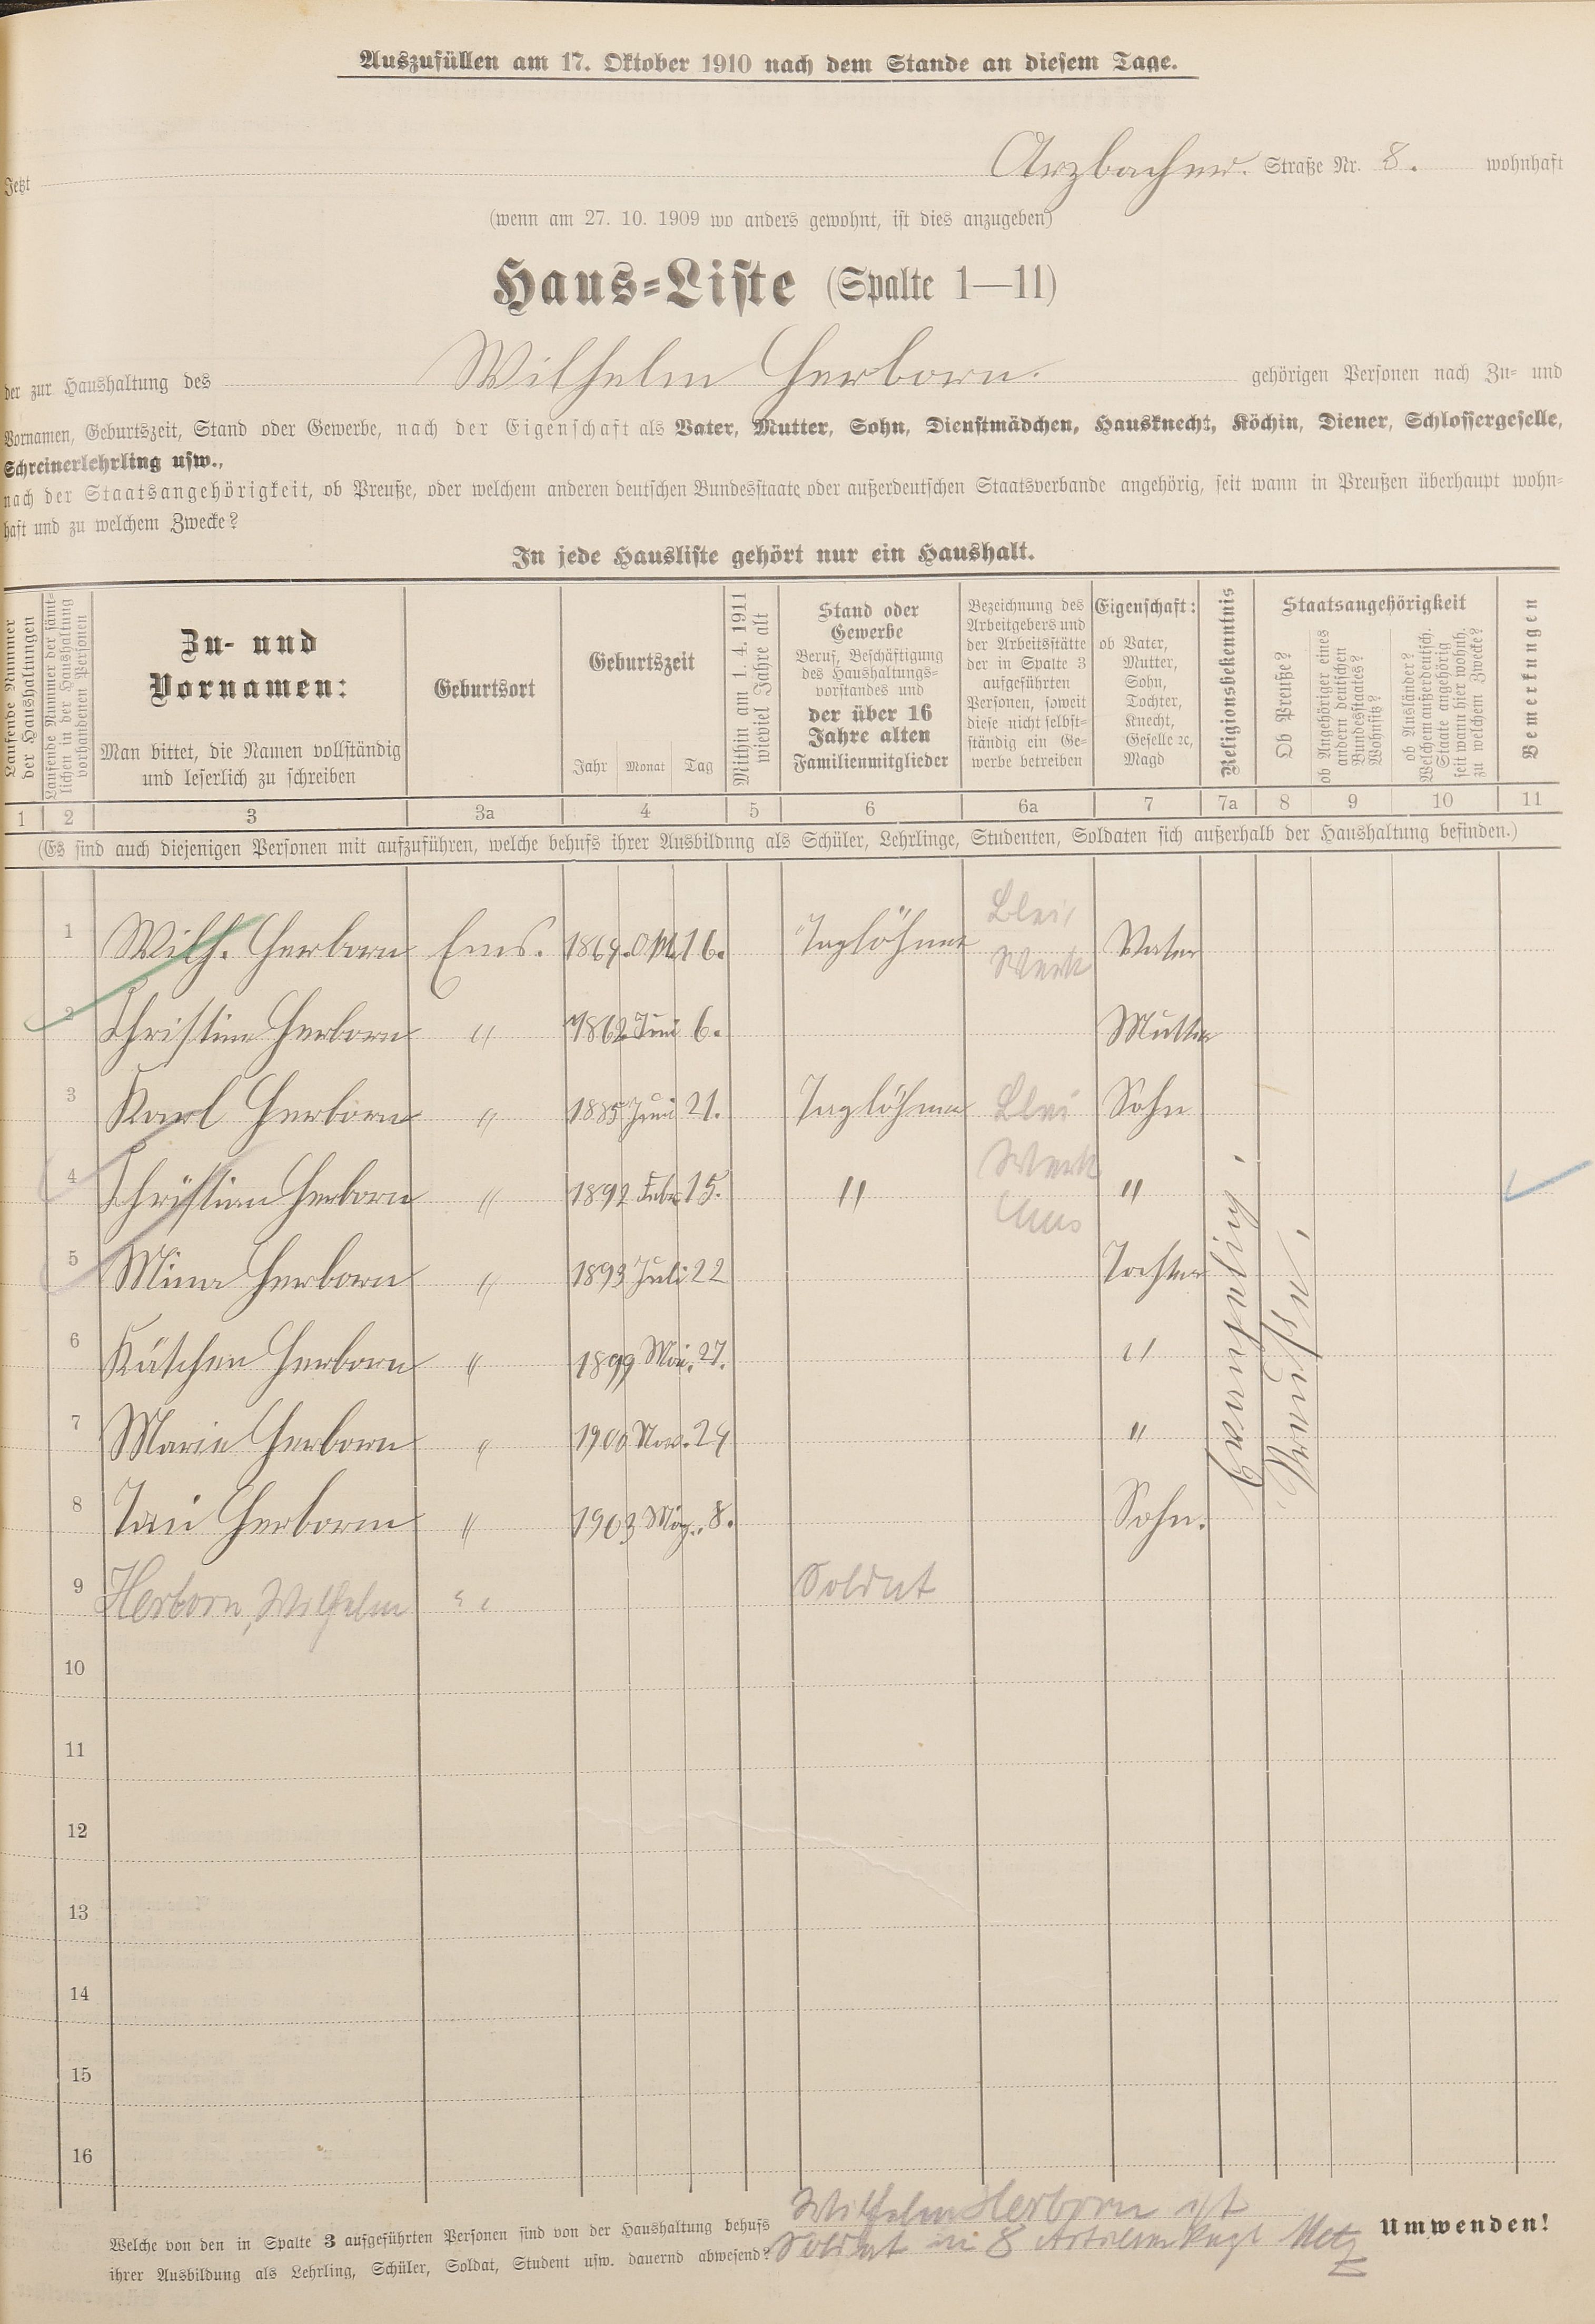 Auszufüllen am 17. Oktober 1910 nach dem Stande an diesem Tage.
Jetzt Arzbacher. Straße Nr. 8. wohnhaft
(wenn am 27. 10. 1909 wo anders gewohnt, ist dies anzugeben)
Haus-Liste (Spalte 1—11)
der zur Haushaltung des Wilhelm Herborn. gehörigen Personen nach Zu- und
Vornamen, Geburtszeit, Stand oder Gewerbe, nach der Eigenschaft als Vater, Mutter, Sohn, Dienstmädchen, Hausknecht, Köchin, Diener, Schlossergeselle,
Schreinerlehrling usw.,
nach der Staatsangehörigkeit, ob Preuße, oder welchem anderen deutschen Bundesstaate oder außerdeutschen Staatsverbande angehörig, seit wann in Preußen überhaupt wohn-
haft und zu welchem Zwecke?
In jede Hausliste gehört nur ein Haushalt.
Laufende Nummer
der Haushaltungen
Laufende Nummer der sämt-
lichen in der Haushaltung
vorhandenen Personen
Zu- und
Vornamen:
Man bittet, die Namen vollständig
und leserlich zu schreiben
Geburtsort
Geburtszeit
Jahr Monat Tag
Mithin am 1. 4. 1911
wieviel Jahre alt
Stand oder
Gewerbe
Beruf, Beschäftigung
des Haushaltungs-
vorstandes und
der über 16
Jahre alten
Familienmitglieder
Bezeichnung des
Arbeitgebers und
der Arbeitsstätte
der in Spalte 3
aufgeführten
Personen, soweit
diese nicht selbst-
ständig ein Ge-
werbe betreiben
Eigenschaft:
ob Vater,
Mutter,
Sohn,
Tochter,
Knecht,
Geselle ꝛc,
Magd
Religionsbekenntnis
Staatsangehörigkeit
Ob Preuße?
ob Angehöriger eines
andern deutschen
Bundesstaates?
Wohnsitz?
ob Ausländer?
Welchem außerdeutsch.
Staate angehörig
seit wann hier wohnh.
zu welchem Zwecke?
Bemerkungen
1 2 3 3a 4 5 6 6a 7 7a 8 9 10 11
(Es sind auch diejenigen Personen mit aufzuführen, welche behufs ihrer Ausbildung als Schüler, Lehrlinge, Studenten, Soldaten sich außerhalb der Haushaltung befinden.)
1 Wilh. Herborn Ems. 1864. Okt. 16. Taglöhner Blei Werk Vater
2 Christine Herborn " 1862 Juni 6. Mutter
3 Karl Herborn " 1885 Juni 21. Taglöhner Blei Sohn
4 Christian Herborn " 1892 Febr. 15. " Werk Ems "
5 Mina Herborn " 1893 Juli 22 Tochter
6 Kätchen Herborn " 1899 Mai. 27. "
7 Marie Herborn " 1900 Nov. 24 "
8 Herborn " 1903 8. Sohn.
Evangelisch.
Preußen.
9 Herborn, Wilhelm " Soldat
10
11
12
13
14
15
16
Welche von den in Spalte 3 aufgeführten Personen sind von der Haushaltung behufs
ihrer Ausbildung als Lehrling, Schüler, Soldat, Student usw. dauernd abwesend?
Wilhelm Herborn ist
Soldat in 8 Metz
Umwenden!